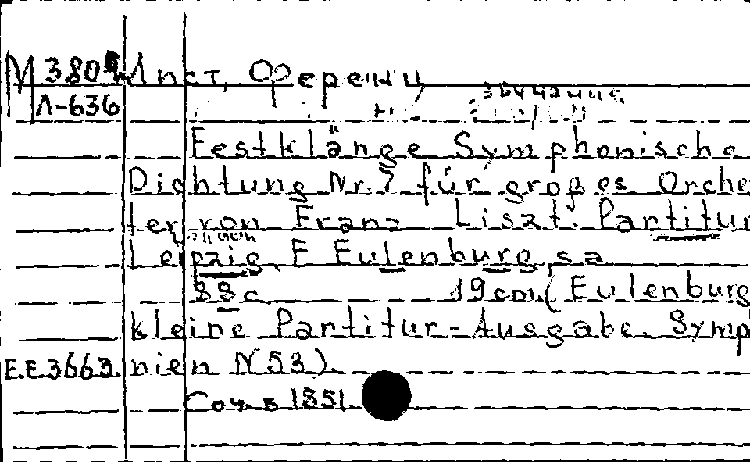 М 380 Лист, Ференц
Л-636
Festklänge Symphonische
Dichtung Nr. 7 für großes Orche
ter von Franz Liszt. Partitur
Leipzig, E Eulenburg, s a
88 c 19 cm (Eulenburg
kleine Partitur-Ausgabe. Symp
E.E.3663. nien N 53).
Соч. в 1851